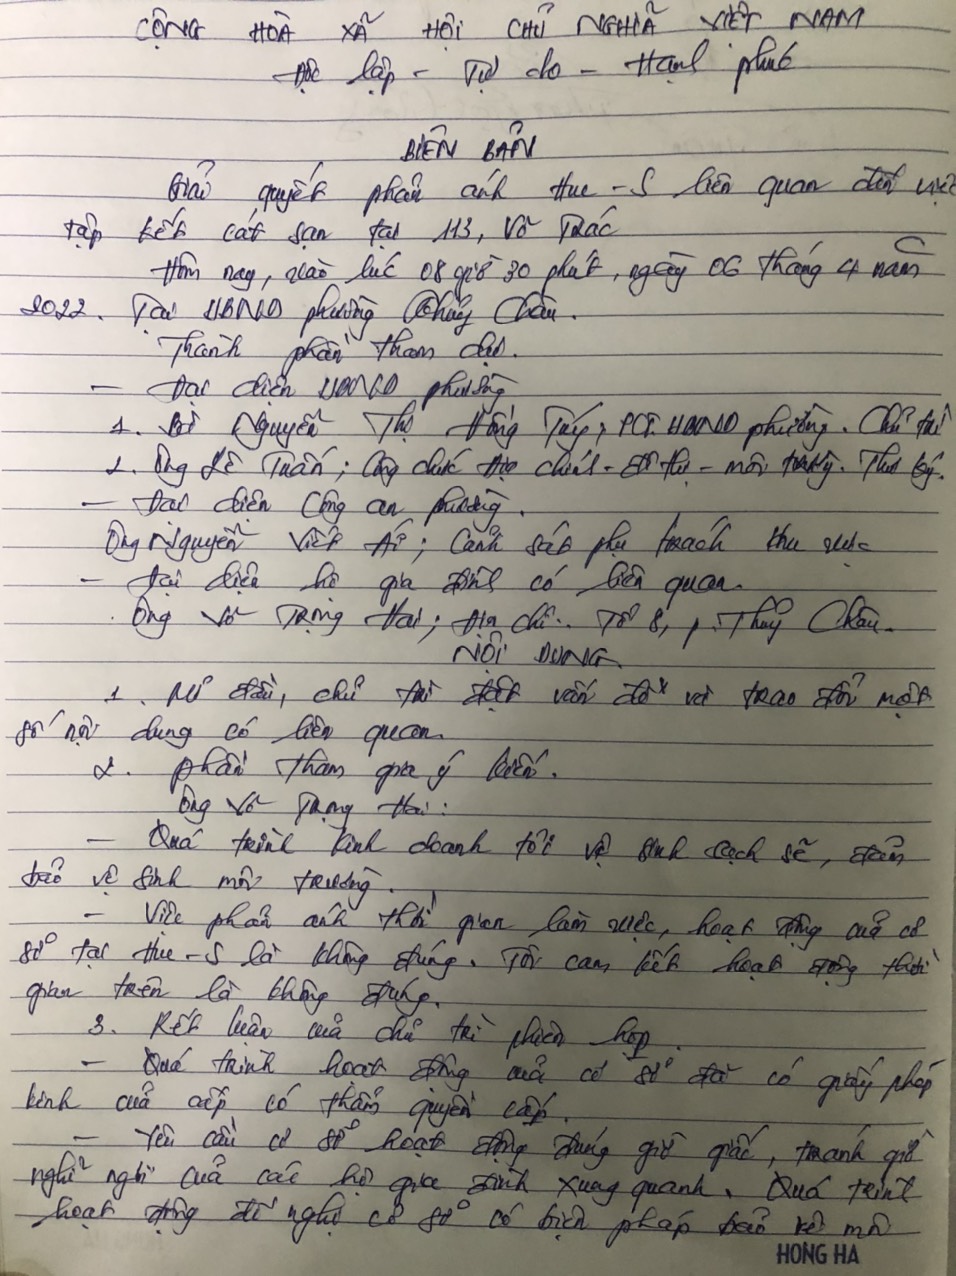 CỘNG HOÀ XÃ HỘI CHỦ NGHĨA VIỆT NAM
Độc lập - Tự do - Hạnh phúc
BIÊN BẢN
Giải quyết phản ánh Hue-S liên quan đến việc
tập kết cát sạn tại 113, Võ Trác
Hôm nay, vào lúc 08 giờ 30 phút, ngày 06 tháng 4 năm
2022. Tại UBND phường Thủy Châu.
Thành phần tham dự.
- Đại diện UBND phường
1. Bà Nguyễn Thị Hồng Thúy, PCT.UBND phường. Chủ trì
2. Ông Lê Tuấn; Công chức địa chính - Đô thị - môi trường. Thư ký.
- Đại diện Công an phường.
Ông Nguyễn Viết Ái; Cảnh sát phụ trách khu vực
- Đại diện hộ gia đình có liên quan.
Ông Võ Trọng Hai; địa chỉ: Tổ 8, p. Thủy Châu.
NỘI DUNG.
1. Mở đầu, chủ trì đặt vấn đề và trao đổi một
số nội dung có liên quan.
2. Phần tham gia ý kiến.
Ông Võ Trọng Hai:
- Quá trình kinh doanh tôi vệ sinh sạch sẽ, đảm
bảo vệ sinh môi trường.
- Việc phản ánh thời gian làm việc, hoạt động của cơ
sở tại Hue-S là không đúng. Tôi cam kết hoạt động thời
gian trên là không đúng.
3. Kết luận của chủ trì phiên họp.
- Quá trình hoạt động của cơ sở đã có giấy phép
kinh của cấp có thẩm quyền cấp.
- Yêu cầu cơ sở hoạt động đúng giờ giấc, tránh giờ
nghỉ ngơi của các hộ gia đình xung quanh. Quá trình
hoạt động đề nghị cơ sở có biện pháp bảo vệ môi
HONG HA